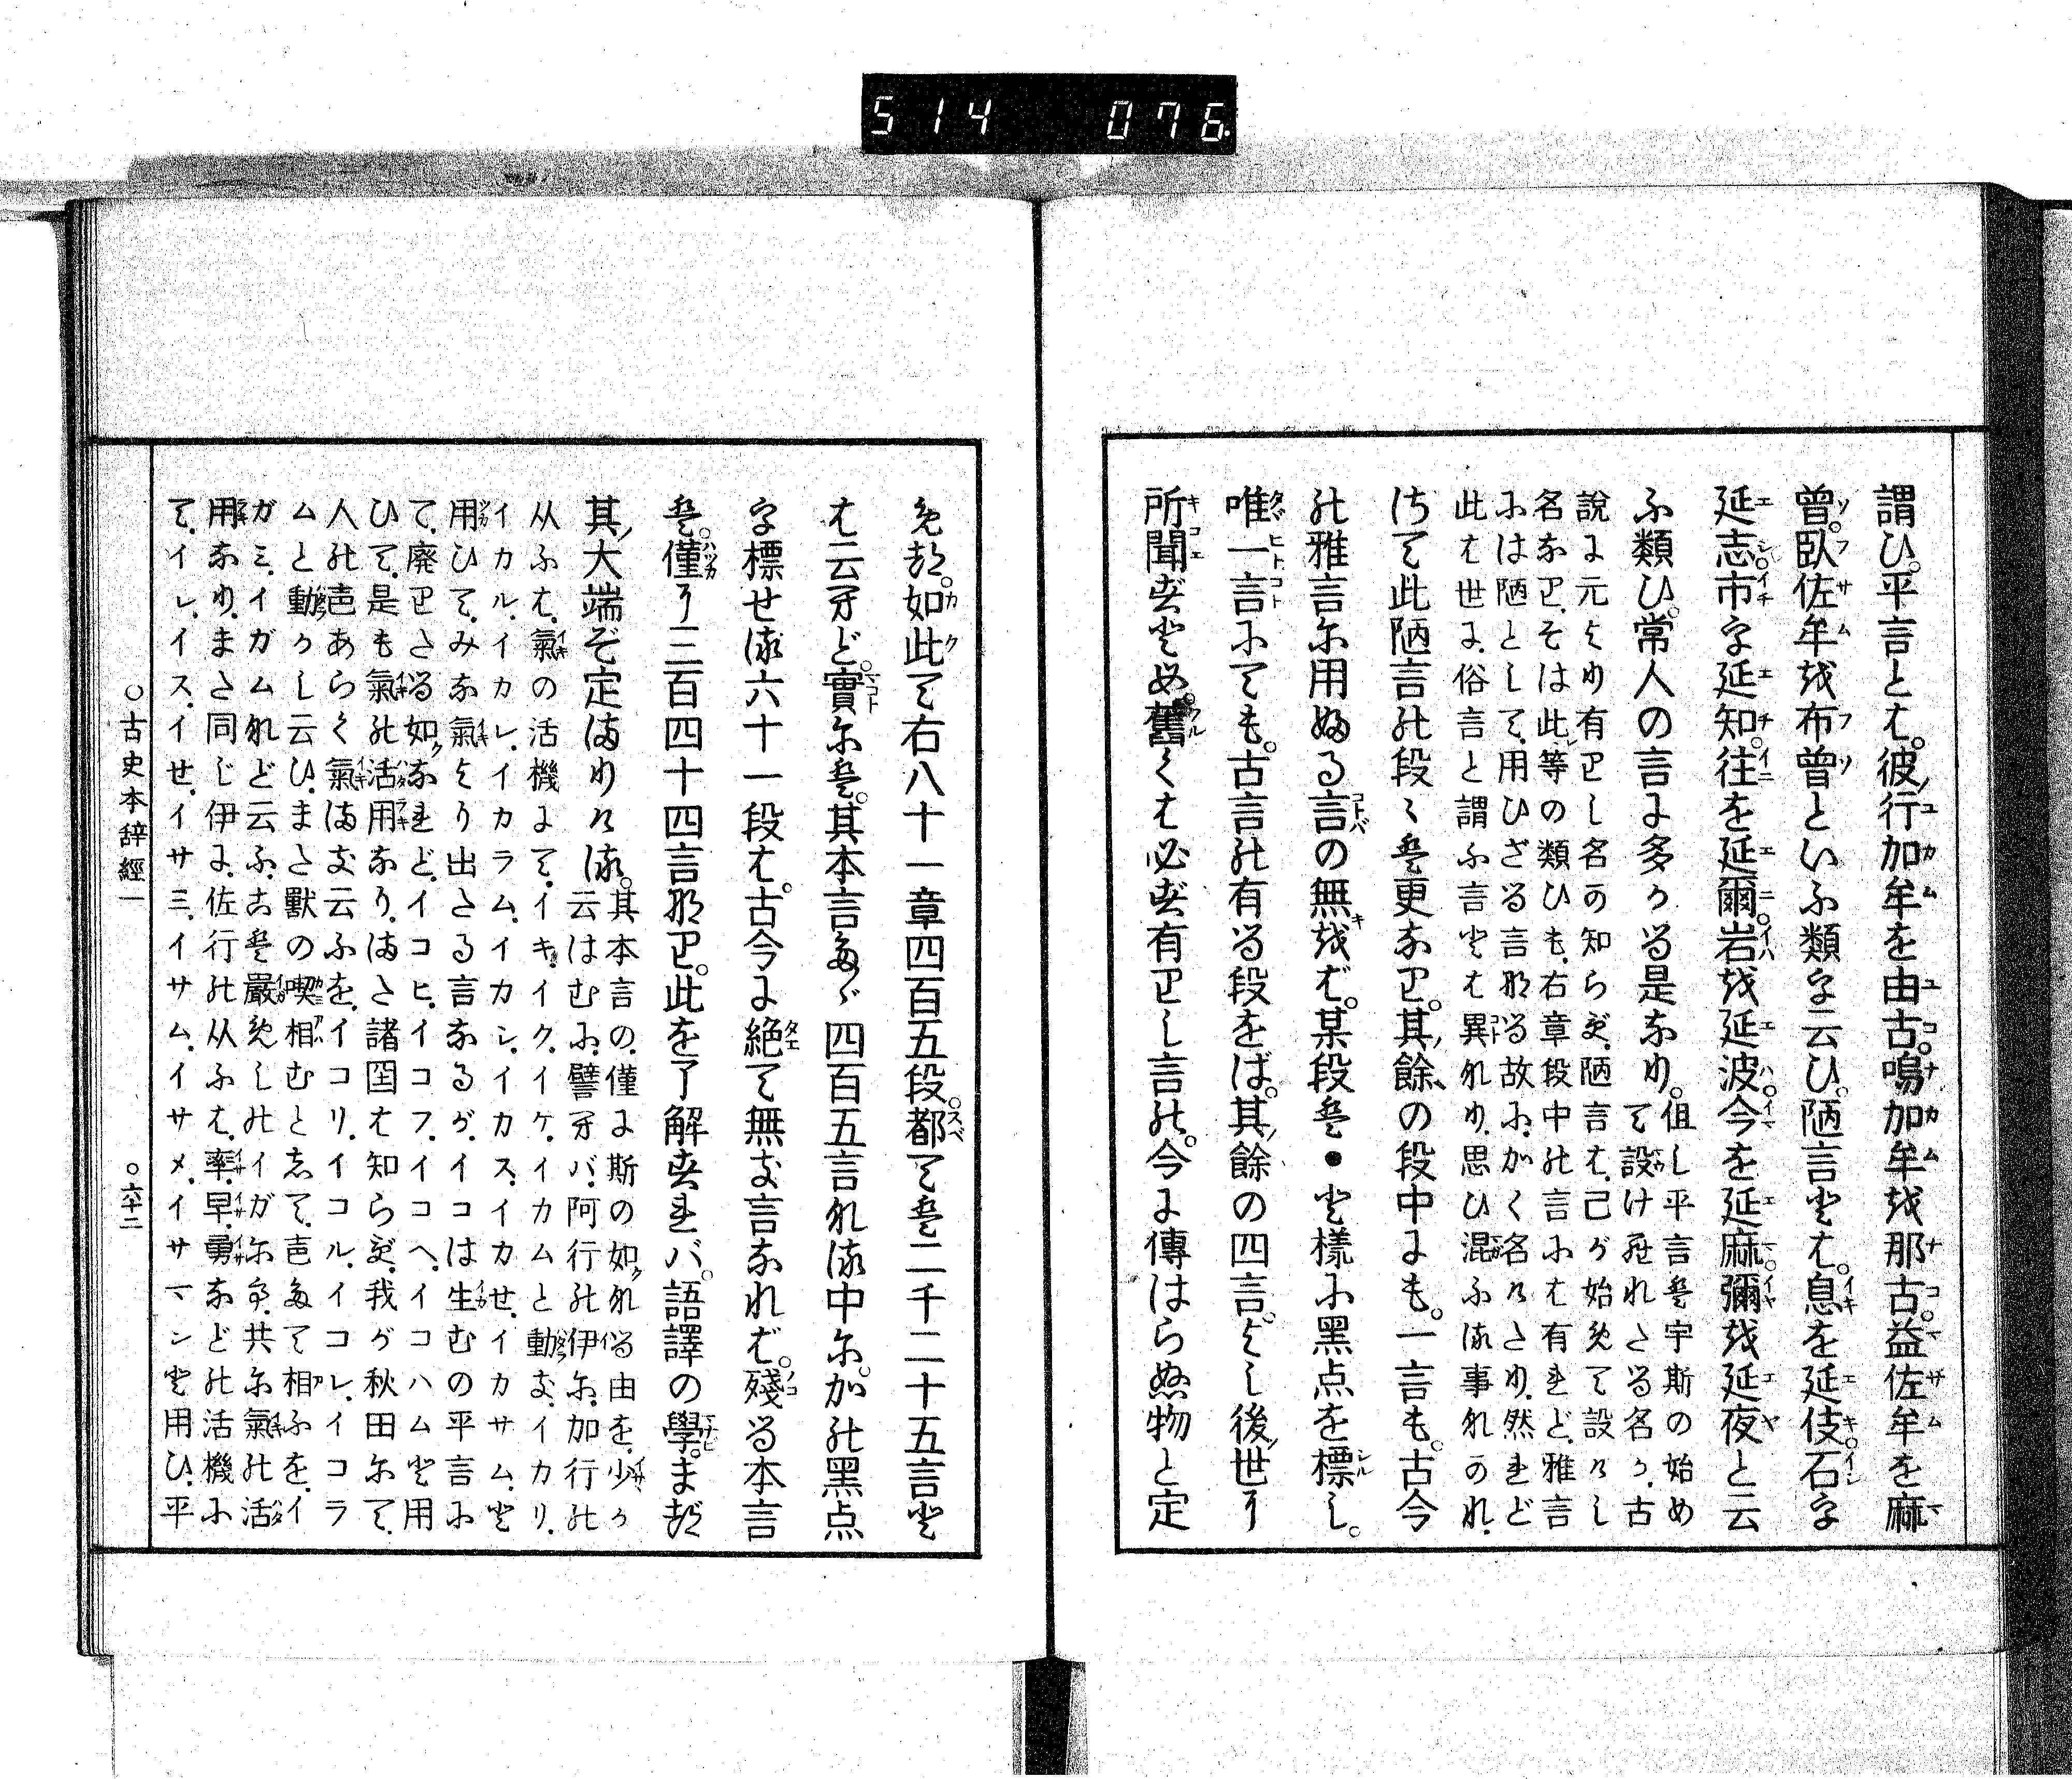 514 076.
謂ひ。平言とは。彼行加牟を由古。鳴加牟を那古。益佐牟を麻
曾。臥佐牟を布曾といふ類を云ひ。陋言とは。息を延伎。石を
延志。市を延知。往を延爾。岩を延波。今を延麻。彌を延夜と云
ふ類ひ。常人の言に多かる是なり。但し平言は宇斯の始め
て設け玉れたる名か、古
說に元より有りし名か知らず。陋言は、己が始めて設けし
名なり、そは此等の類ひも、右章段中の言には有れど、雅言
には陋として、用ひざる言なる故に、かく名けたり、然れど
此は世に、俗言と謂ふ言とは異れり、思ひ混ふる事なかれ、
さて此陋言の段々は更なり。其餘の段中にも。一言も。古今
の雅言に用ゐる言の無をば。某段は●と樣に黑点を標し。
唯一言にても。古言の有る段をば。其餘の四言。よし後世に
所聞ずとも。舊くは必ず有りし言の。今に傳はらぬ物と定
めき。如此て右八十一章四百五段。都ては二千二十五言と
は云へど。實には。其本言たゞ四百五言なる中に。かの黑点
を標せる六十一段は。古今に絶て無き言なれば。殘る本言
は。僅に三百四十四言なり。此を了解すれバ。語譯の學。まづ
其大端ぞ定まりける。其本言の、僅に斯の如れる由を、少か
云はむに、譬へバ、阿行の伊に、加行の
从ふは、氣の活機にて、イキ、イク、イケ、イカムと動き、イカリ、
イカル、イカレ、イカラム、イカシ、イカス、イカせ、イカサム、と
用ひて、みな氣より出たる言なるが、イコは生むの平言に
て、廃りたる如くなれど、イコヒ、イコフ、イコヘ、イコハムと用
ひて、是も氣の活用なり、また諸国は知らず、我が秋田にて、
人の声あらく氣まき云ふを、イコリ、イコル、イコレ、イコラ
ムと動かし云ひ、また獸の喫相むとして、声たて相ふを、イ
ガミ、イガムなど云ふ、こは嚴めしのイガにて、共に氣の活
用なり、また同じ伊に、佐行の从ふは、率、早、勇などの活機に
て、イシ、イス、イせ、イサミ、イサム、イサメ、イサマンと用ひ、平
○古史本辞經一
○六十二